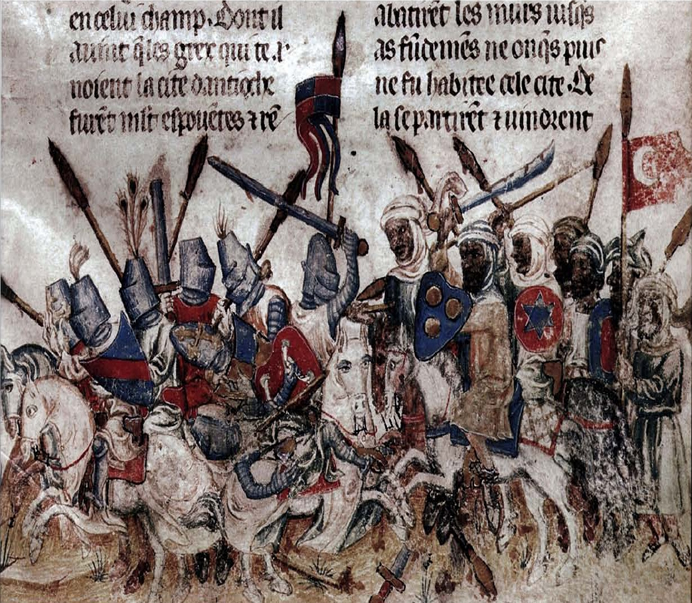 en celui champ. Dont il
noient la cite dantioche
furēt mlt espouētes ⁊ rē
abatirēt les murs iusqs
as fūdemēs ne onqs puis
ne fu habitee cele cite. De
la se partirēt ⁊ uindrent